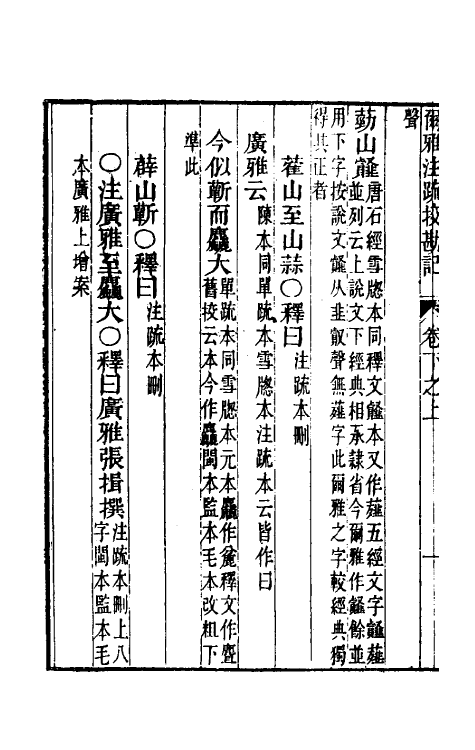 爾雅注疏挍勘記 卷下之上 一
聲
葝山䪥唐石經雪牕本同釋文䪥本又作薤五經文字䪥薤
並列云上說文下經典相承隷省今爾雅作䪥餘並
用下字按說文䪥从韭㕡聲無薤字此爾雅之字較經典獨
得其正者
山至山蒜○釋曰注疏本刪
廣雅云陳本同單疏本雪牕本注疏本云皆作曰
今似蘄而麤大單疏本同雪牕本元本麤作麄釋文作
舊挍云本今作麤閩本監本毛本改粗下
準此
薜山蘄○釋曰注疏本刪
○注廣雅至麤大○釋曰廣雅張揖撰注疏本刪上八
字閩本監本毛
本廣雅上增案